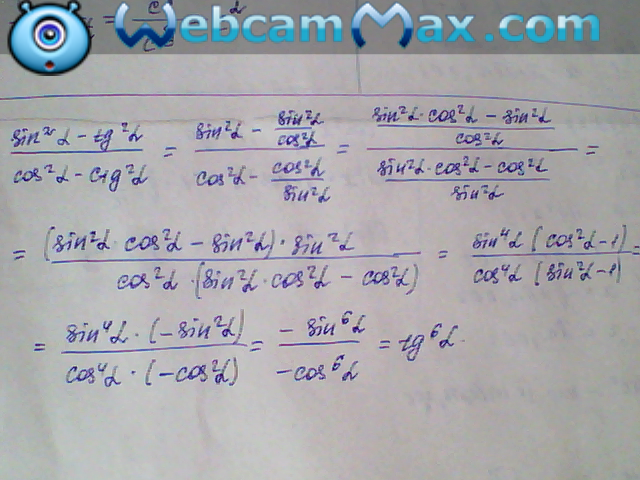 WebcamMax.com
sin²α - tg²α / cos²α - ctg²α = sin²α - sin²α/cos²α / cos²α - cos²α/sin²α = sin²α · cos²α - sin²α / cos²α / sin²α · cos²α - cos²α / sin²α =
= (sin²α · cos²α - sin²α) · sin²α / cos²α · (sin²α · cos²α - cos²α) = sin⁴α (cos²α - 1) / cos⁴α (sin²α - 1) =
= sin⁴α · (-sin²α) / cos⁴α · (-cos²α) = -sin⁶α / -cos⁶α = tg⁶α.